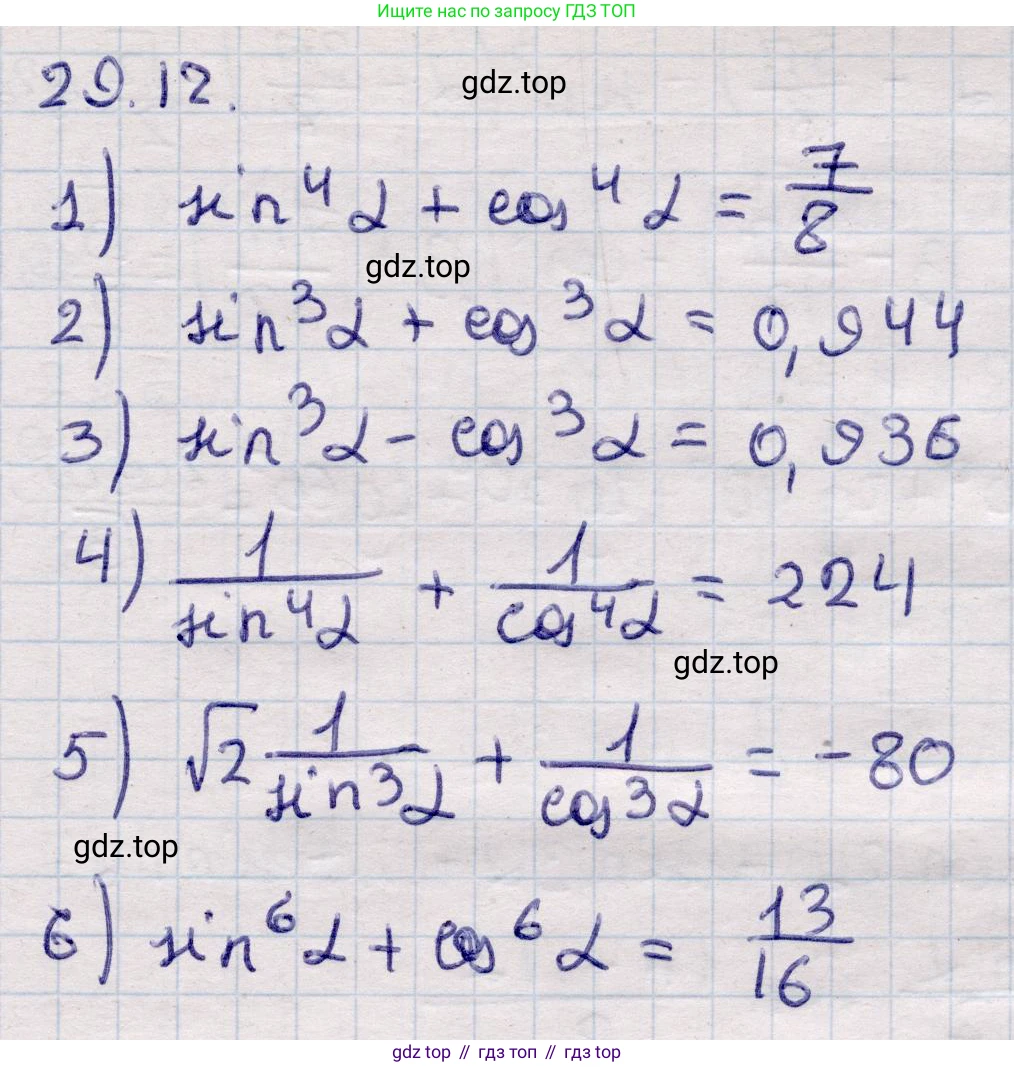 Ищите нас по запросу ГДЗ ТОП
29.12.
gdz.top
1) sin⁴α + cos⁴α = 7/8
gdz.top
2) sin³α + cos³α = 0,944
3) sin³α - cos³α = 0,936
4) 1/sin⁴α + 1/cos⁴α = 224
gdz.top
5) √2 1/sin³α + 1/cos³α = -80
gdz.top
6) sin⁶α + cos⁶α = 13/16
gdz top // гдз топ // гдз top